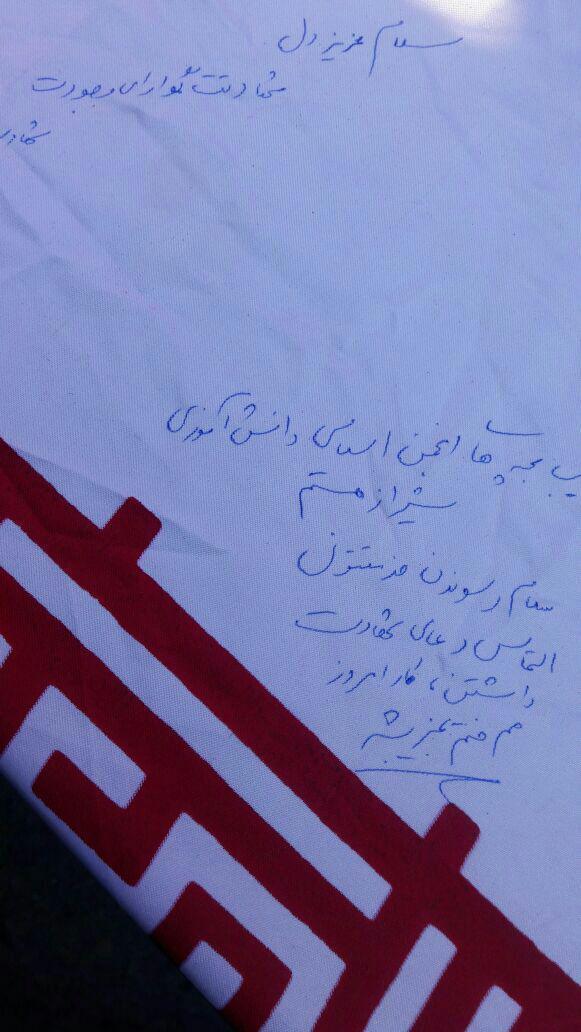 سلام عزیز دل
شهادتت گوارای وجودت
شهادت
بچه ها انجمن اسلامی دانش آموزی
شیراز هستم
سلام رسوندن خدمتتون
التماس دعای شهادت
داشتن، کار امروز
هم ختم بخیر بشه